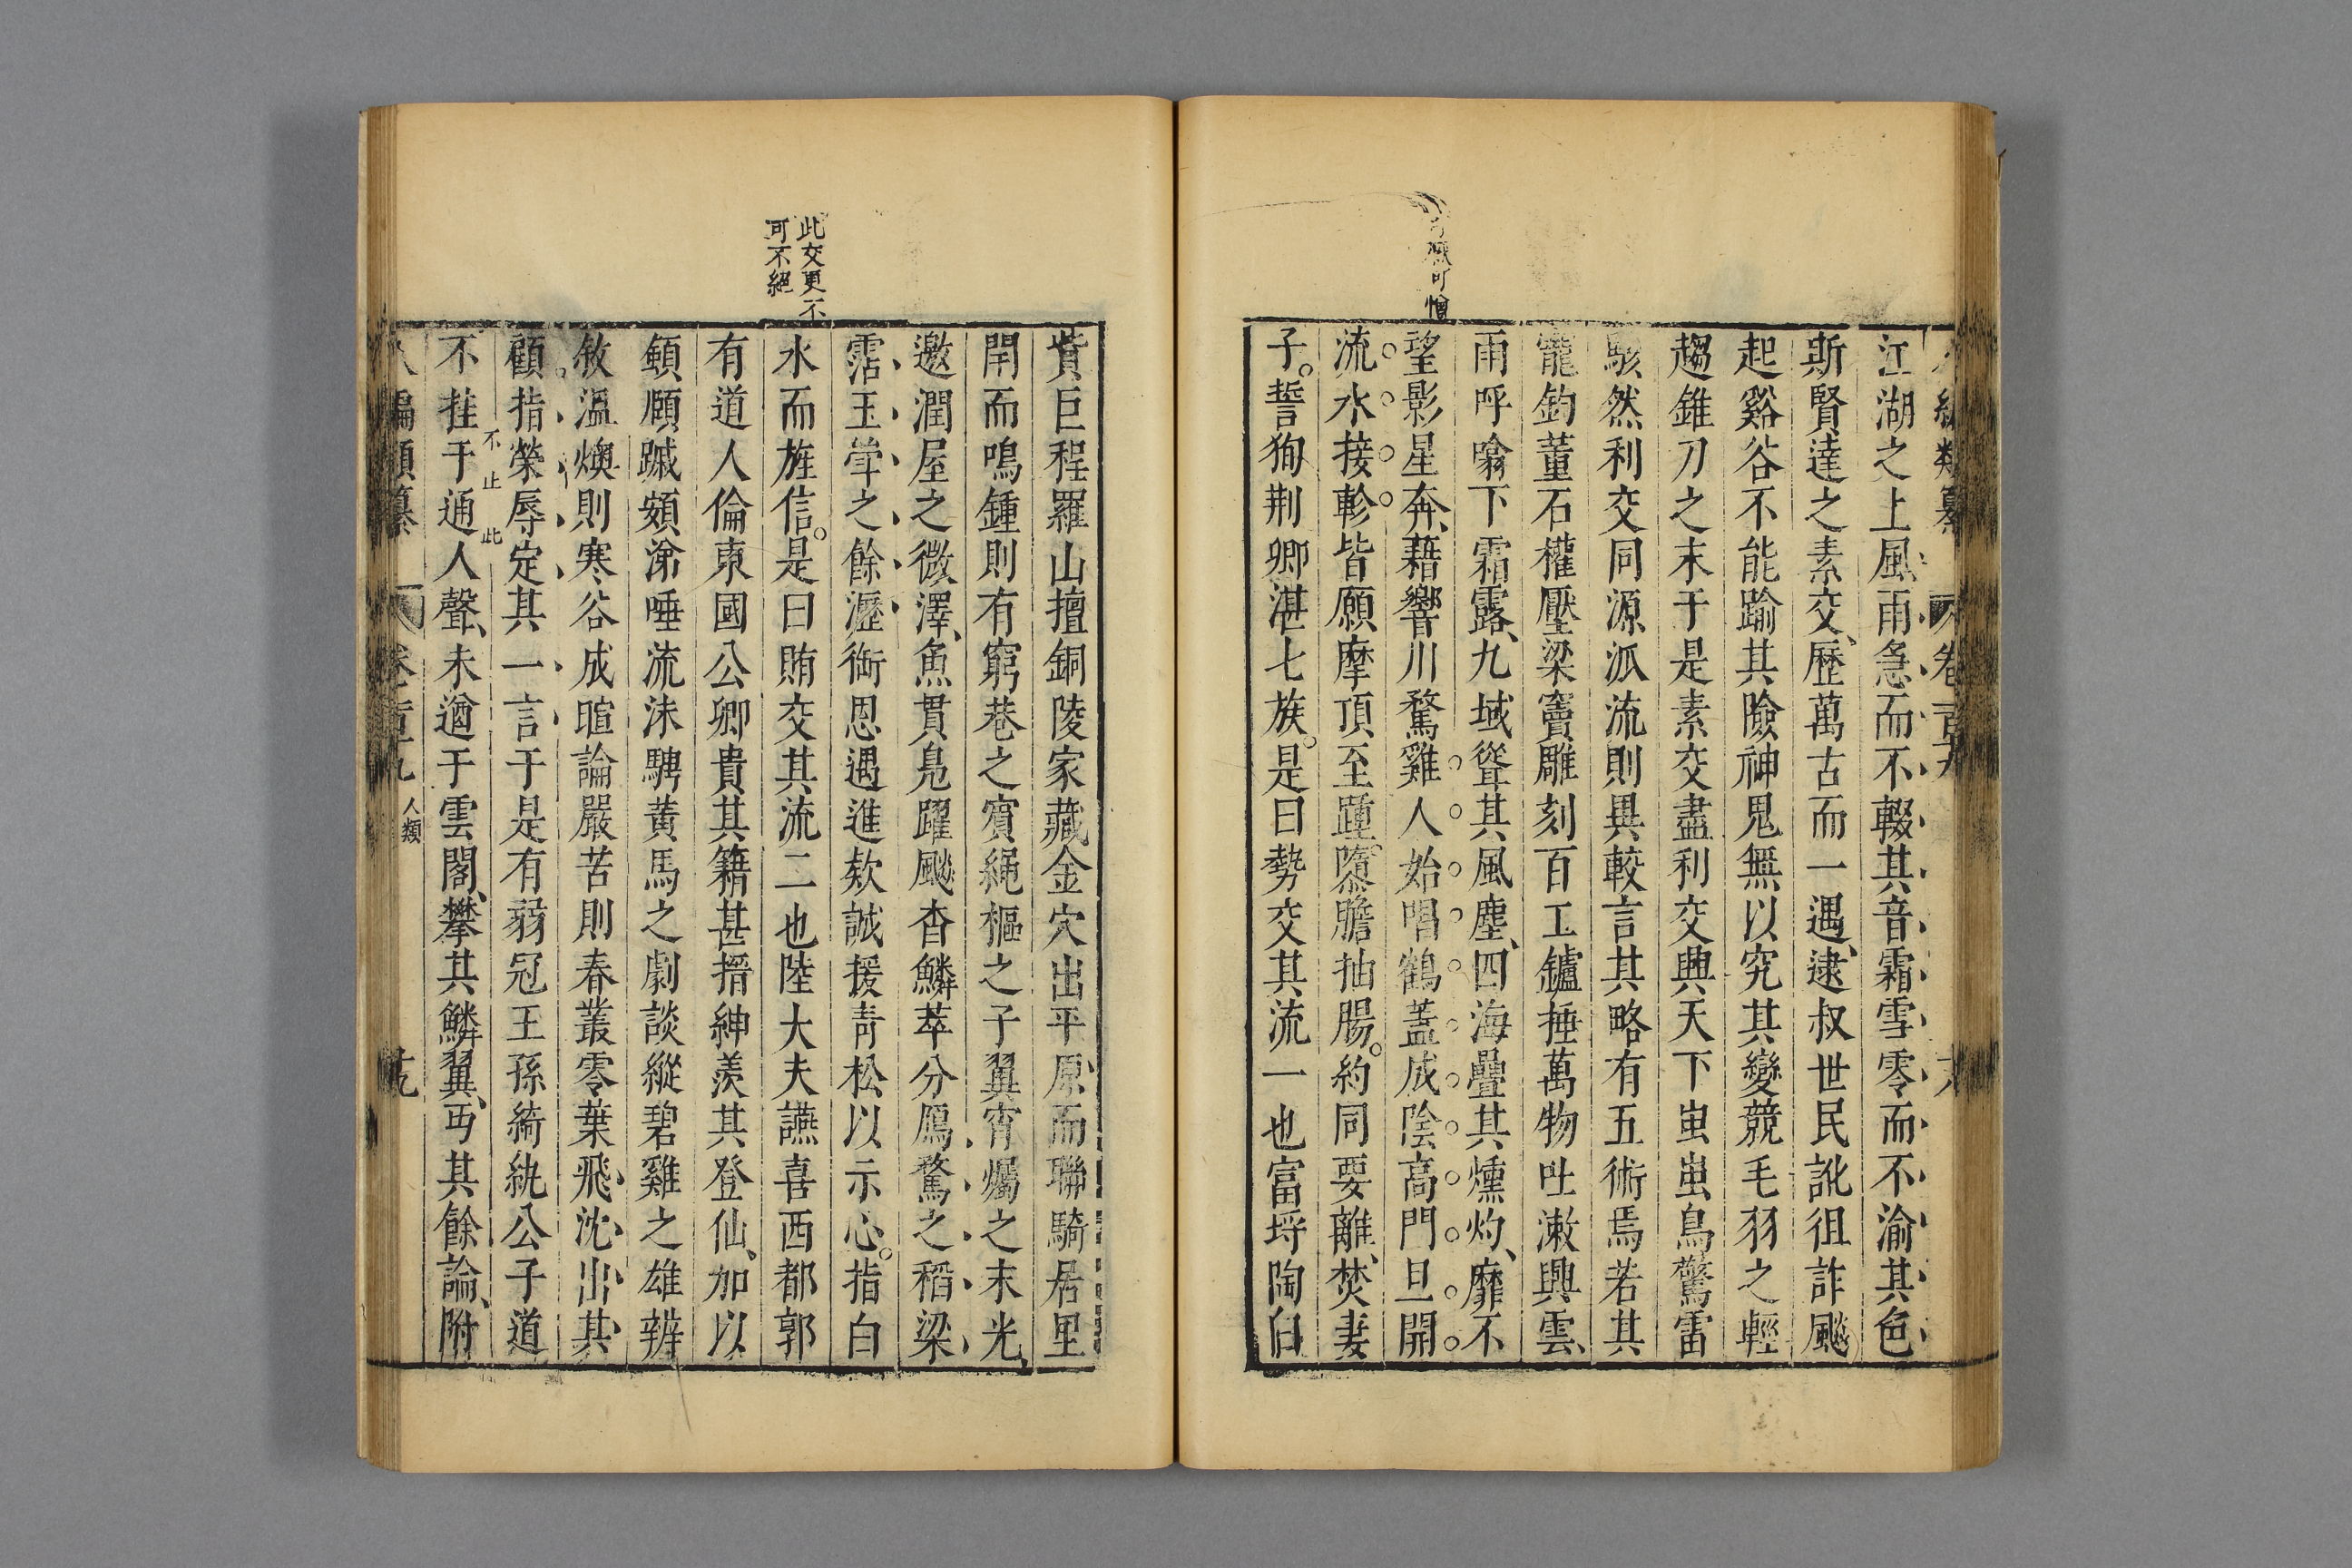 江湖之上風雨急而不輟其音霜雪零而不渝其色
斯賢達之素交歷萬古而一遇逮叔世民訛徂詐飈
起谿谷不能踰其險神鬼無以究其變競毛羽之輕
趨錐刀之末于是素交盡利交興天下蚩蚩鳥驚雷
駭然利交同源派流則異較言其略有五術焉若其
寵鈞董石權壓梁竇雕刻百工鑪捶萬物吐漱興雲
雨呼噏下霜露九域聳其風塵四海疊其燻灼靡不
望影星奔藉響川騖雞人始唱鶴蓋成陰高門旦開
流水接軫皆願摩頂至踵隳膽抽腸約同要離焚妻
子誓狥荆卿湛七族是曰勢交其流一也富埒陶白
可憎
貲巨程羅山擅銅陵家藏金穴出平原而聯騎居里
閈而鳴鍾則有窮巷之賓繩樞之子冀宵燭之末光
邀潤屋之微澤魚貫鳧躍颷沓鱗萃分鴈鶩之稻梁
霑玉斝之餘瀝銜恩遇進欵誠援青松以示心指白
水而旌信是曰賄交其流二也陸大夫讌喜西都郭
有道人倫東國公卿貴其籍甚搢紳羨其登仙加以
顩頤蹙頞涕唾流沫騁黃馬之劇談縱碧雞之雄辨
敘溫燠則寒谷成暄論嚴苦則春叢零葉飛沈出其
顧指榮辱定其一言于是有弱冠王孫綺紈公子道
不挂于通人聲未遒于雲閣攀其鱗翼丐其餘論附
此交更不
可不絕
不止此
編類纂 卷百九 人類